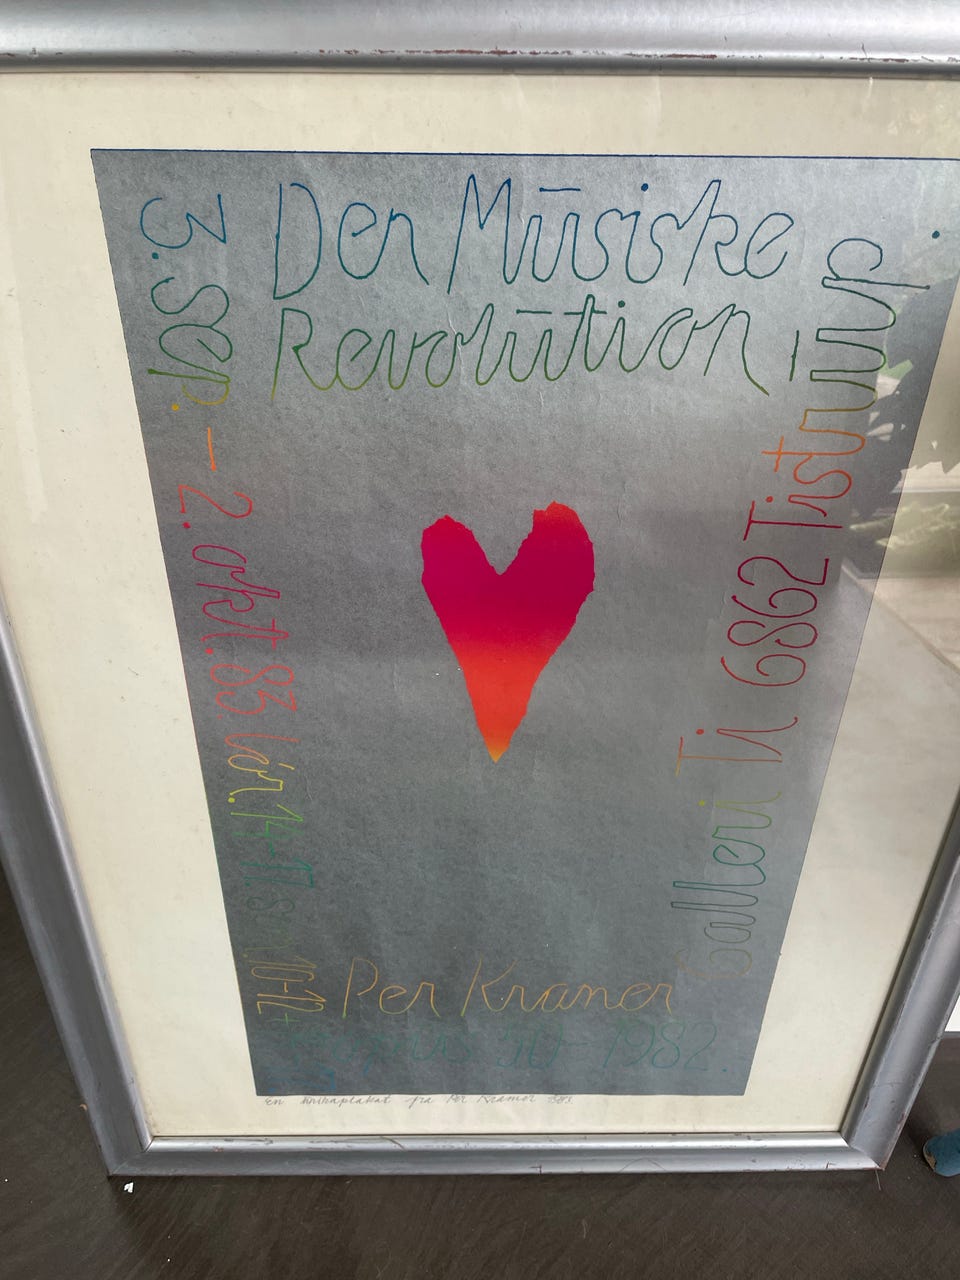 Den Mūsiske
Revolūtion
3. sep. – 2. okt. 83. lör. 14-17. søn. 10-12
Galleri Ti 6862 Tistrūp.
Per Kramer
50 - 1982.
En fra Per Kramer